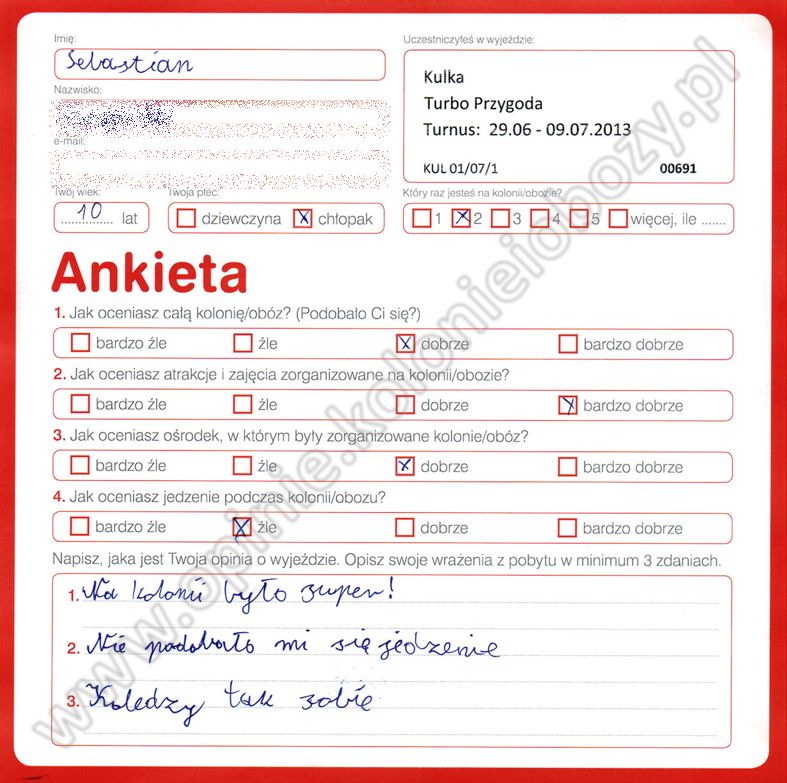 Imię:
Sebastian
Uczestniczyłeś w wyjeździe:
Kulka
Turbo Przygoda
Turnus: 29.06 - 09.07.2013
KUL 01/07/1 00691
Nazwisko:
e-mail:
Twój wiek:
10 lat
Twoja płeć:
dziewczyna x chłopak
Który raz jesteś na kolonii/obozie?
1 x 2 3 4 5 więcej, ile .......
Ankieta
1. Jak oceniasz całą kolonię/obóz? (Podobało Ci się?)
bardzo źle źle x dobrze bardzo dobrze
2. Jak oceniasz atrakcje i zajęcia zorganizowane na kolonii/obozie?
bardzo źle źle dobrze x bardzo dobrze
3. Jak oceniasz ośrodek, w którym były zorganizowane kolonie/obóz?
bardzo źle źle x dobrze bardzo dobrze
4. Jak oceniasz jedzenie podczas kolonii/obozu?
bardzo źle x źle dobrze bardzo dobrze
Napisz, jaka jest Twoja opinia o wyjeździe. Opisz swoje wrażenia z pobytu w minimum 3 zdaniach.
1. Na kolonii było super!
2. Nie podobało mi się jedzenie
3. Koledzy tak sobie
www.opinie.kolonieiobozy.pl